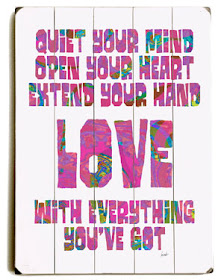 QUIET YOUR MIND
OPEN YOUR HEART
EXTEND YOUR HAND
LOVE
WITH EVERYTHING
YOU'VE GOT